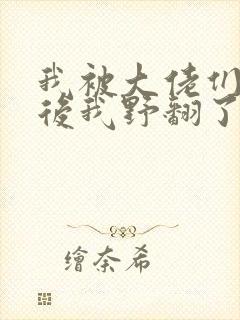 我被大佬们
後我野翻了
繪奈希